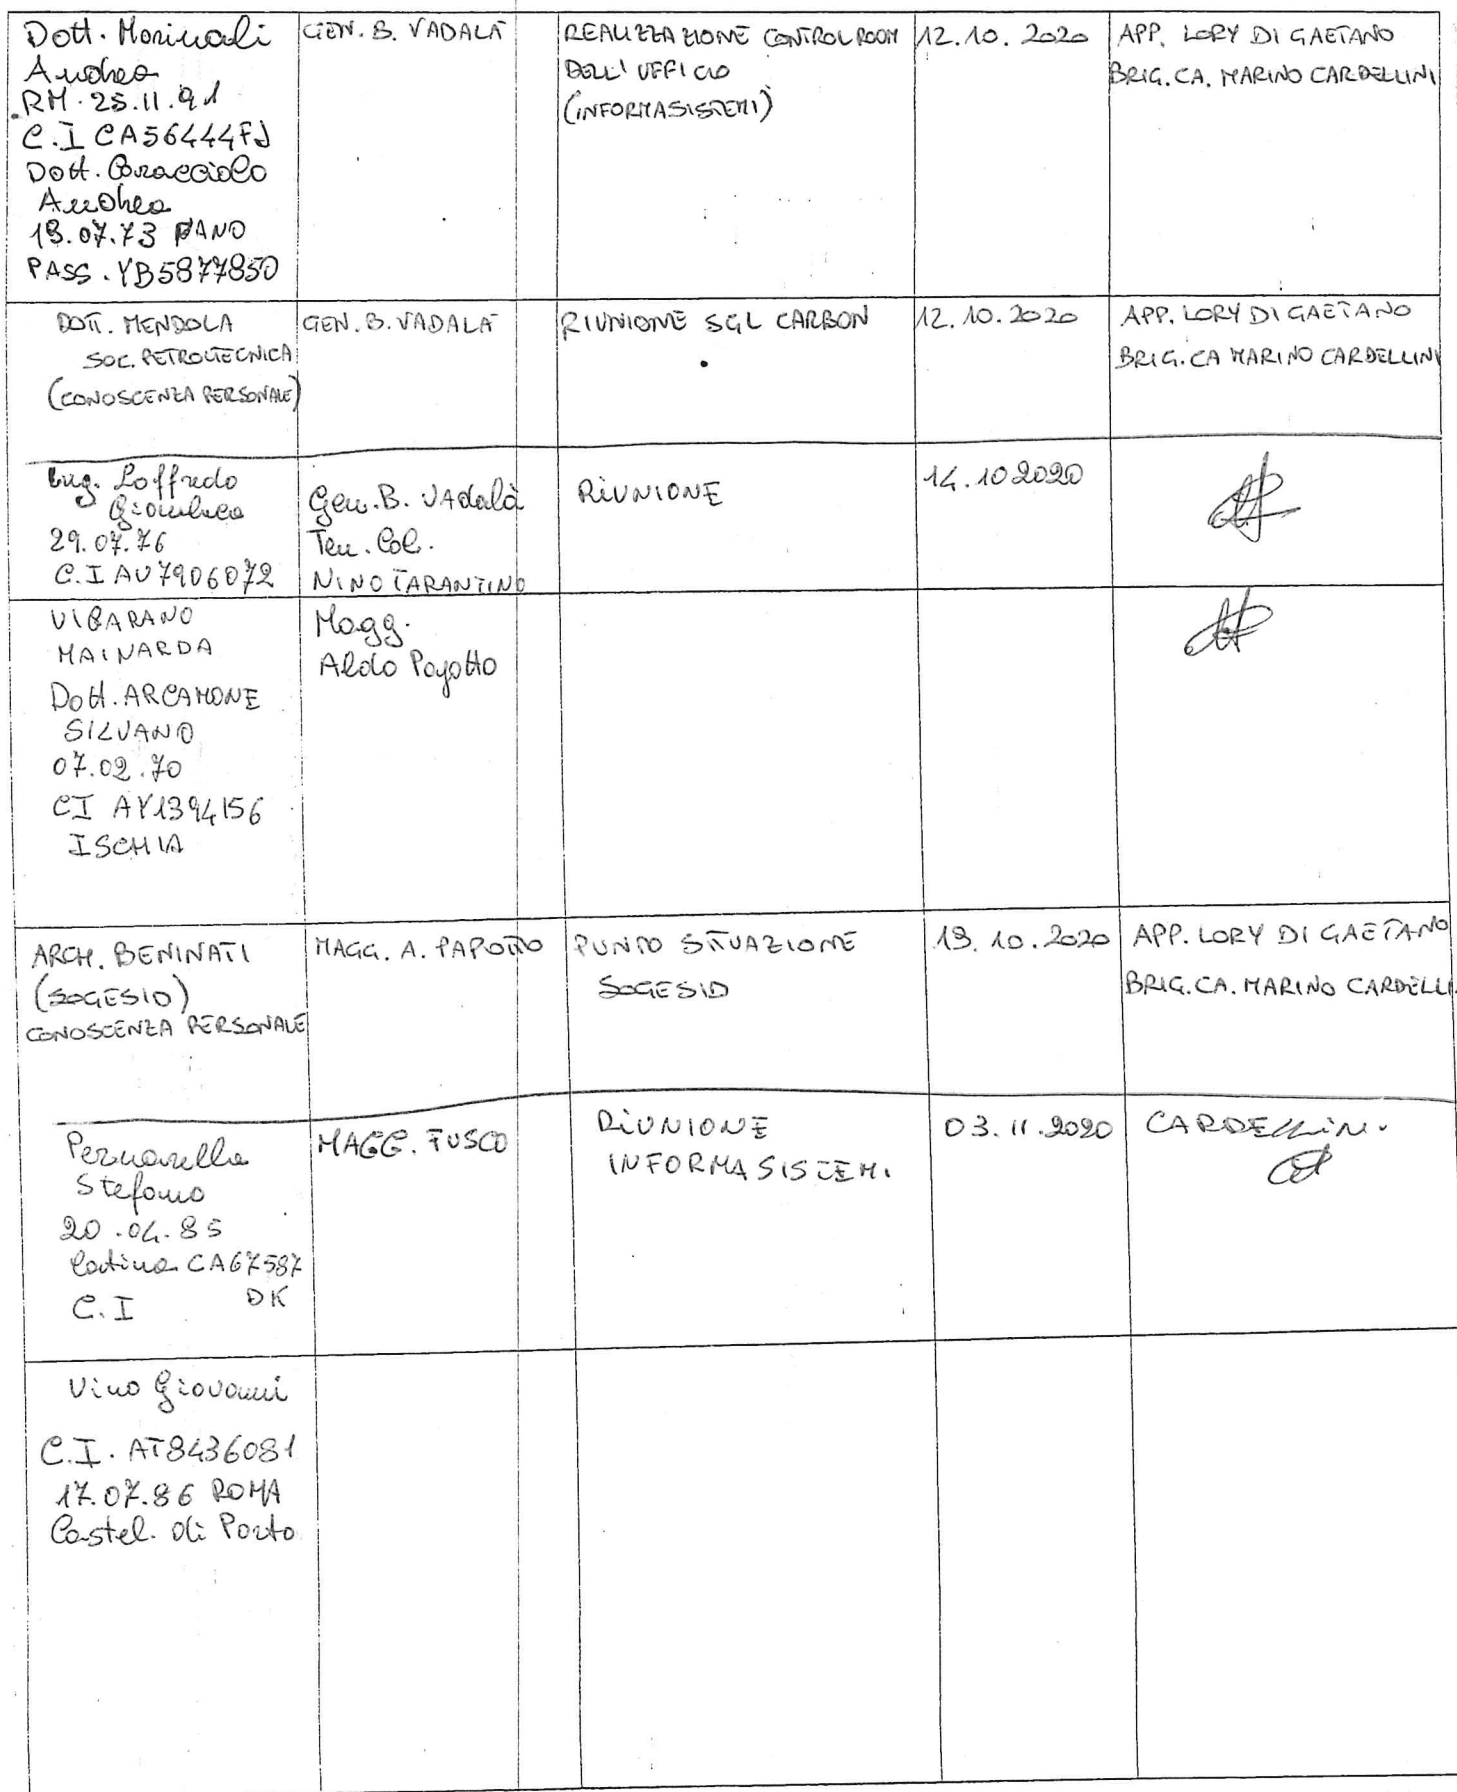 Dott. Morinali
Andrea
RM. 25.11.91
C.I CA56444FJ
Dott. Caracciolo
Andrea
19.07.73 FANO
PASS. YB5877850
GEN. B. VADALÀ
REALIZZAZIONE CONTROL ROOM
DELL' UFFICIO
(INFORMASISTEMI)
12.10.2020
APP. LORY DI GAETANO
BRIG.CA. MARINO CARDELLINI
DOTT. MENDOLA
SOC. PETROLTECNICA
(CONOSCENZA PERSONALE)
GEN. B. VADALÀ
RIUNIONE SGL CARBON
12.10.2020
APP. LORY DI GAETANO
BRIG.CA MARINO CARDELLINI
Ing. Loffredo
Gianluca
29.07.76
C.I AU7906072
Gen. B. VAdalà
Ten. Col.
NINO TARANTINO
RiUNIONE
14.10 2020
VIGARANO
MAINARDA
Dott. ARCAMONE
SILVANO
07.02.70
CI AY1394156
ISCHIA
Magg.
Aldo Papotto
ARCH. BENINATI
(SOGESID)
CONOSCENZA PERSONALE
MAGG. A. PAPOTTO
PUNTO SITUAZIONE
SOGESID
19.10.2020
APP. LORY DI GAETANO
BRIG.CA. MARINO CARDELLI
Pernarella
Stefano
20.04.85
Latina CA67587
C.I DK
MAGG. FUSCO
RiUNIONE
INFORMASISTEMi
03.11.2020
CARDELLINi
Vino Giovanni
C.I. AT8436081
17.07.86 ROMA
Castel. di Porto